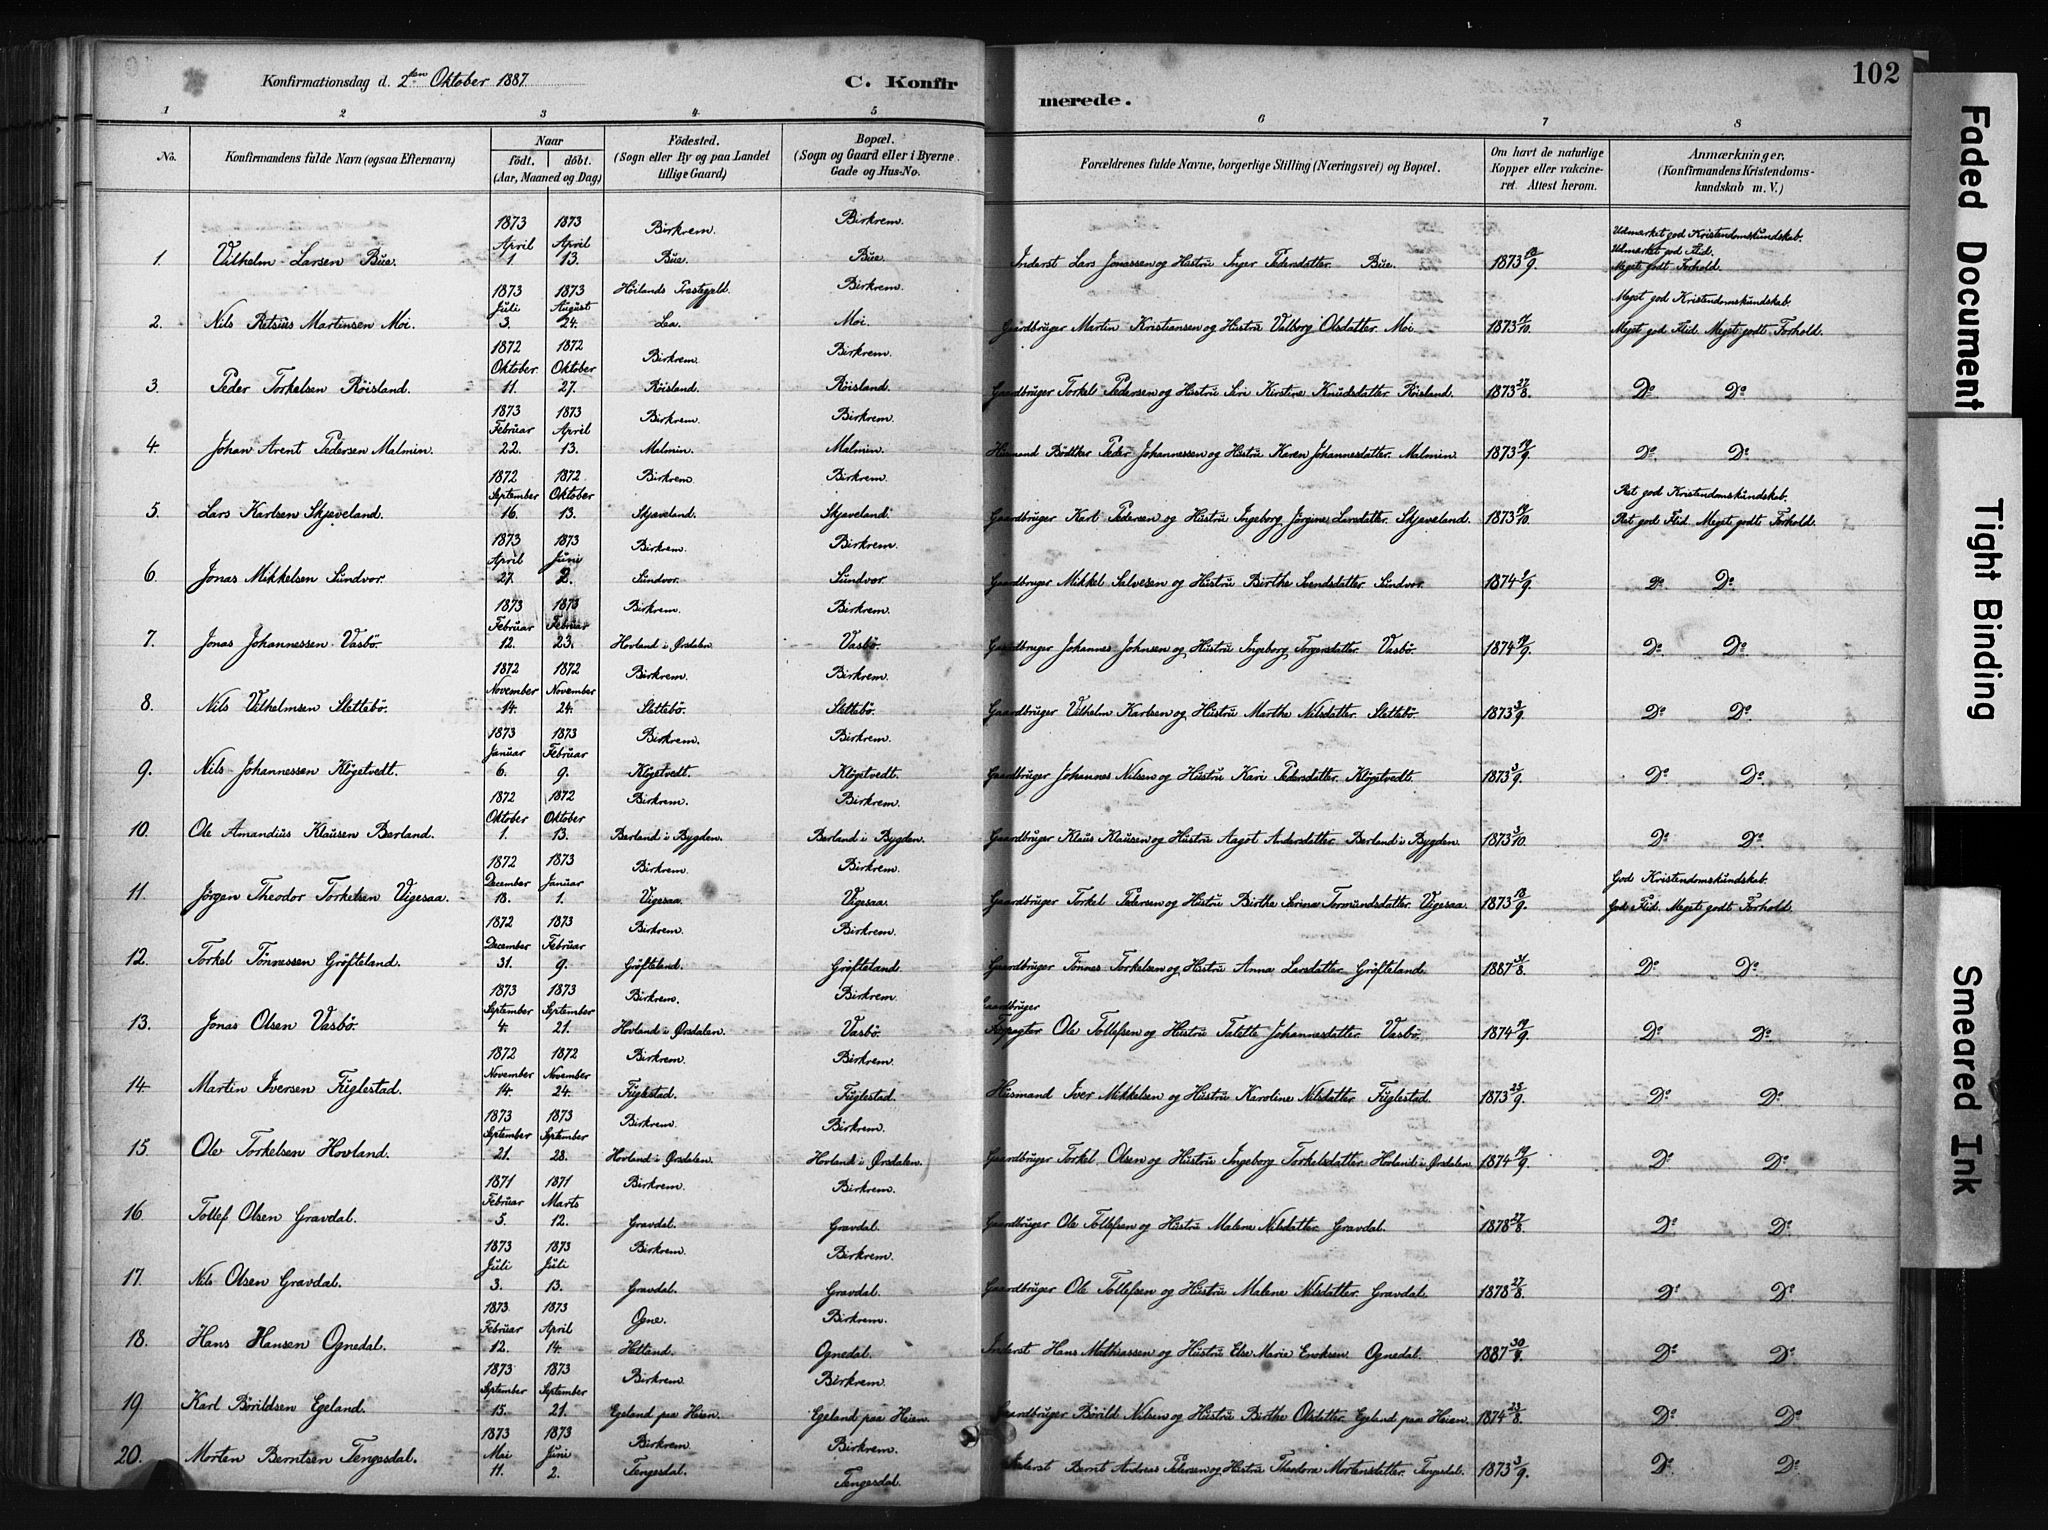 Konfirmationsdag d. 2den Oktober 1887.
C. Konfirmerede.
102
1 2 3 4 5 6 7 8
No.
Konfirmandens fulde Navn (ogsaa Efternavn)
Naar
født. døbt.
(Aar, Maaned og Dag)
Fødested.
(Sogn eller By og paa Landet
tillige Gaard)
Bopæl.
(Sogn og Gaard eller i Byerne
Gade og Hus-No.
Forældrenes fulde Navne, borgerlige Stilling (Næringsvei) og Bopæl.
Om havt de naturlige
Kopper eller vakcine-
ret. Attest herom.
Anmærkninger.
(Konfirmandens Kristendoms-
kundskab m. V.)
1. Vilhelm Larsen Bue. 1873 April 1 1873 April 13. Birkrem. Bue. Birkrem. Bue. Inderst Lars Jonassen og Hustru Inger Pedersdatter. Bue. 1873 Udmærket god Kristendomskundskab. Udmærket god Flid. Meget godt Forhold.
2. Nils Retsius Martinsen Moi. 1873 Juli 3. 1873 August 24. Høilands Prestegjeld. Lea. Birkrem. Moi. Gaardbruger Martin Kristiansen og Hustru Valborg Olsdatter. Moi. 1873 Meget god Kristendomskundskab. Meget god Flid. Meget godt Forhold.
3. Peder Torkelsen Røisland. 1872 Oktober 11. 1872 Oktober 27. Birkrem. Røisland. Birkrem. Røisland. Gaardbruger Torkel Pedersen og Hustru Seri Kirstine Knudsdatter. Røisland. 1873 27/8. Do. Do.
4. Johan Arent Pedersen Malmin. 1873 Februar 22. 1873 April 13. Birkrem. Malmin. Birkrem. Malmin. Husmand Bødtker Peder Johannessen og Hustru Karen Johannesdatter. Malmin. 1873 19/9. Do. Do.
5. Lars Karlsen Skjæveland. 1872 September 16. 1872 Oktober 13. Birkrem. Skjæveland. Birkrem. Skjæveland. Gaardbruger Karl Pedersen og Hustru Ingeborg Jørgine Larsdatter. Skjæveland. 1873 Ret god Kristendomskundskab. Ret god Flid. Meget godt Forhold.
6. Jonas Mikkelsen Sundvor. 1873 April 27. 1873 Juni 2. Birkrem. Sundvor. Birkrem. Sundvor. Gaardbruger Mikkel Salvesen og Hustru Birthe Svendsdatter. Sundvor. 1874 Do. Do.
7. Jonas Johannessen Vasbø. 1873 Februar 12. 1873 Februar 23. Birkrem. Hovland i Ørsdalen. Birkrem. Vasbø. Gaardbruger Johannes Johnsen og Hustru Ingeborg Torgersdatter. Vasbø. 1874 19/9. Do. Do.
8. Nils Vilhelmsen Slettebø. 1872 November 14. 1872 November 24. Birkrem. Slettebø. Birkrem. Slettebø. Gaardbruger Vilhelm Karlsen og Hustru Marthe Nilsdatter. Slettebø. 1873 3/9. Do. Do.
9. Nils Johannessen Kløgetvedt. 1873 Januar 6. 1873 Februar 9. Birkrem. Kløgetvedt. Birkrem. Kløgetvedt. Gaardbruger Johannes Nilsen og Hustru Kari Pedersdatter. Kløgetvedt. 1873 3/9. Do. Do.
10. Ole Amandius Klausen Berland. 1872 Oktober 1. 1872 Oktober 13. Birkrem. Berland i Bygden. Birkrem. Berland i Bygden. Gaardbruger Klaus Klausen og Hustru Aagot Andersdatter. Berland i Bygden. 1873 3/10. Do. Do.
11. Jørgen Theodor Torkelsen Vigesaa. 1872 December 18. 1873 Januar 1. Birkrem. Vigesaa. Birkrem. Vigesaa. Gaardbruger Torkel Pedersen og Hustru Birthe Serina Tormundsdatter. Vigesaa. 1873 18/9. God Kristendomskundskab. God Flid. Meget godt Forhold.
12. Torkel Tønnessen Grøfteland. 1872 December 31. 1873 Februar 9. Birkrem. Grøfteland. Birkrem. Grøfteland. Gaardbruger Tønnes Torkelsen og Hustru Anna Larsdatter. Grøfteland. 1887 31/8. Do. Do.
13. Jonas Olsen Vasbø. 1873 September 4. 1873 September 21. Birkrem. Hovland i Ørsdalen. Birkrem. Vasbø. Gaardbruger Ole Tollefsen og Hustru Talette Johannesdatter. Vasbø. 1874 19/9. Do. Do.
14. Martin Iversen Fuglestad. 1872 November 14. 1872 November 24. Birkrem. Fuglestad. Birkrem. Fuglestad. Husmand Iver Mikkelsen og Hustru Karoline Nilsdatter. Fuglestad. 1873 25/9. Do. Do.
15. Ole Torkelsen Hovland. 1873 September 21. 1873 September 28. Birkrem. Hovland i Ørsdalen. Birkrem. Hovland i Ørsdalen. Gaardbruger Torkel Olsen og Hustru Ingeborg Torkelsdatter. Hovland i Ørsdalen. 1874 19/9. Do. Do.
16. Tollef Olsen Gravdal. 1871 Februar 5. 1871 Marts 12. Birkrem. Gravdal. Birkrem. Gravdal. Gaardbruger Ole Tollefsen og Hustru Malene Nilsdatter. Gravdal. 1878 27/8. Do. Do.
17. Nils Olsen Gravdal. 1873 Juli 3. 1873 Juli 13. Birkrem. Gravdal. Birkrem. Gravdal. Gaardbruger Ole Tollefsen og Hustru Malene Nilsdatter. Gravdal. 1878 27/8. Do. Do.
18. Hans Hansen Ognedal. 1873 Februar 12. 1873 April 14. Ogne. Hetland. Birkrem. Ognedal. Inderst Hans Mathiassen og Hustru Else Marie Enoksen. Ognedal. 1887 Do. Do.
19. Karl Børildsen Egeland. 1873 September 15. 1873 September 21. Birkrem. Egeland paa Heien. Birkrem. Egeland paa Heien. Gaardbruger Børild Nilsen og Hustru Birthe Olsdatter. Egeland paa Heien. 1874 23/8. Do. Do.
20. Morten Berntsen Tengesdal. 1873 Mai 11. 1873 Juni 2. Birkrem. Tengesdal. Birkrem. Tengesdal. Inderst Bernt Andreas Pedersen og Hustru Theodora Mortensdatter. Tengesdal. 1873 3/9. Do. Do.
Faded Document
Tight Binding
Smeared Ink